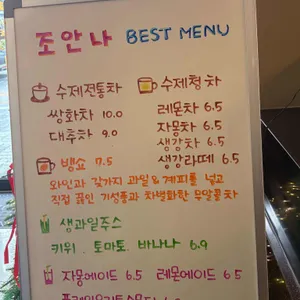 조안나 BEST MENU
수제전통차
쌍화차 10.0
대추차 9.0
수제청차
레몬차 6.5
자몽차 6.5
생강차 6.5
생강라떼 6.5
뱅쇼 7.5
와인과 갖가지 과일&계피를 넣고
직접 끓인 기성품과 차별화한 무알콜차
생과일주스
키위. 토마토. 바나나 6.9
자몽에이드 6.5 레몬에이드 6.5